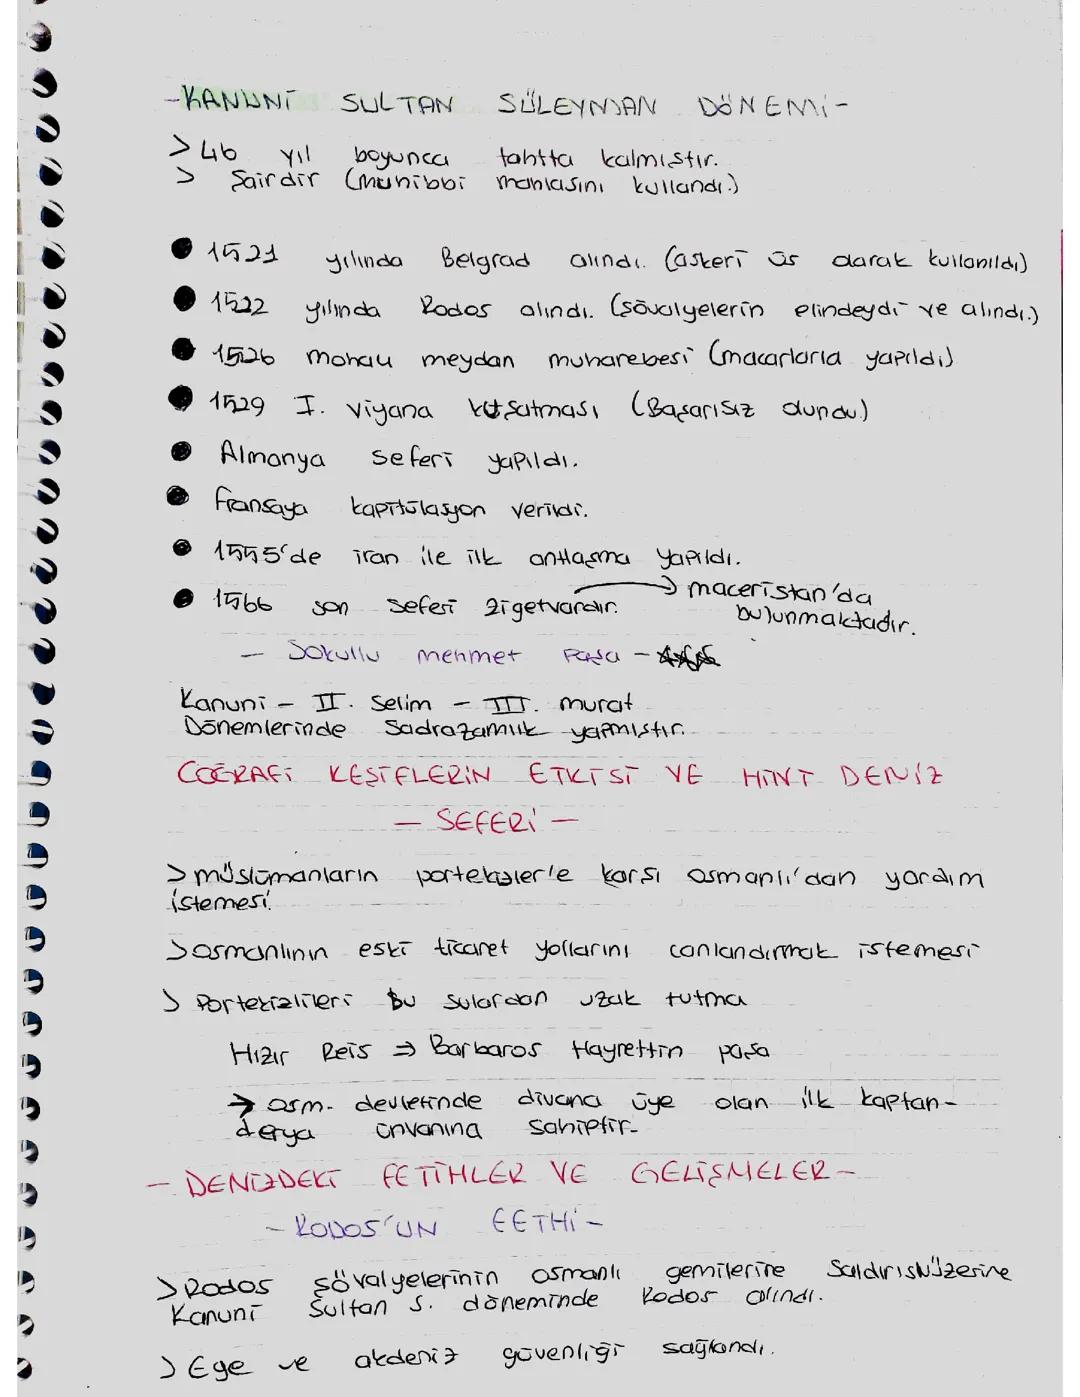 -KANUNİ SULTAN SÜLEYMAN DÖNEMİ-
> 46 yıl boyunca tahtta kalmıştır.
> Şairdir (Muhibbi mahlasını kullandı.)
● 1521 yılında Belgrad alındı. (askerî üs olarak kullanıldı)
● 1522 yılında Rodos alındı. (şövalyelerin elindeydi ve alındı.)
● 1526 mohaç meydan muharebesi (macarlarla yapıldı)
● 1529 I. viyana kuşatması (Başarısız olundu.)
● Almanya seferi yapıldı.
● fransaya kapitülasyon verildi.
● 1555'de iran ile ilk antlaşma yapıldı.
● 1566 son seferi zigetvardır. → maceristan'da
bulunmaktadır.
- Sokullu mehmet Paşa -
Kanuni - II. Selim - III. murat
Dönemlerinde Sadrazamlık yapmıştır.
COĞRAFİ KEŞİFLERİN ETKİSİ VE HİNT DENİZ
- SEFERİ -
> müslümanların portekizler'e karşı osmanlı'dan yardım
istemesi.
> osmanlının eski ticaret yollarını canlandırmak istemesi
> Portekizlileri bu sulardan uzak tutma
Hızır Reis ⇒ Barbaros Hayrettin paşa
→ osm. devletinde divana üye olan ilk kaptan-
derya ünvanına sahiptir.
- DENİZDEKİ FETİHLER VE GELİŞMELER -
- RODOS'UN FETHİ -
> Rodos şövalyelerinin osmanlı gemilerine Saldırısı üzerine
Kanuni Sultan S. döneminde Rodos alındı.
> Ege ve akdeniz güvenliği sağlandı.